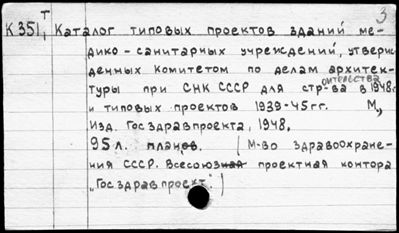 3
т
К351, Каталог типовых проектов зданий ме-
дико-санитарных учреждений, утверж-
денных Комитетом по делам архитек-
туры при СНК СССР для стр-ва в 1948г.
оительства
и типовых проектов 1939-45гг. М.,
Изд. Госздравпроекта, 1948.
95л. планов. (М-во здравоохране-
ния СССР. Всесоюзная проектная контора
„Госздравпроект".)